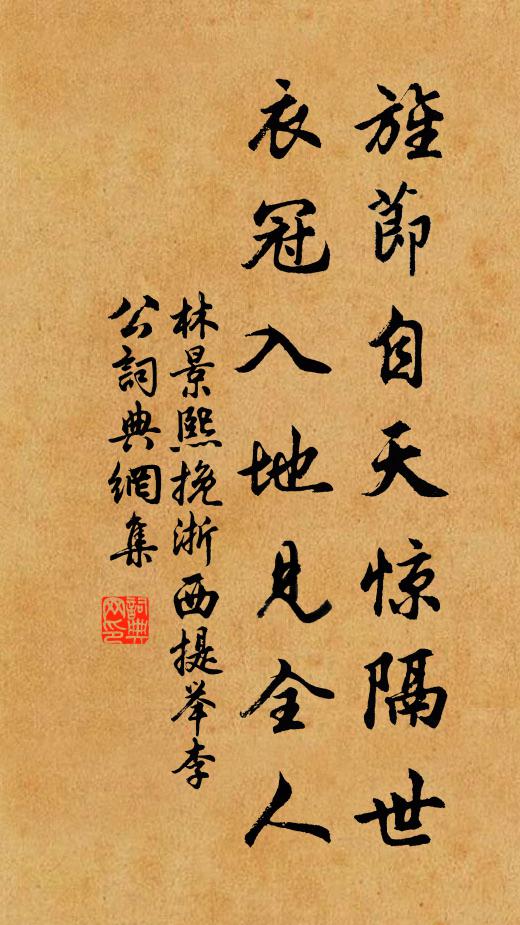 旌節自天惊隔世
衣冠入地見全人
林景熙挽浙西提举李
公詞典網集
詞典
网印